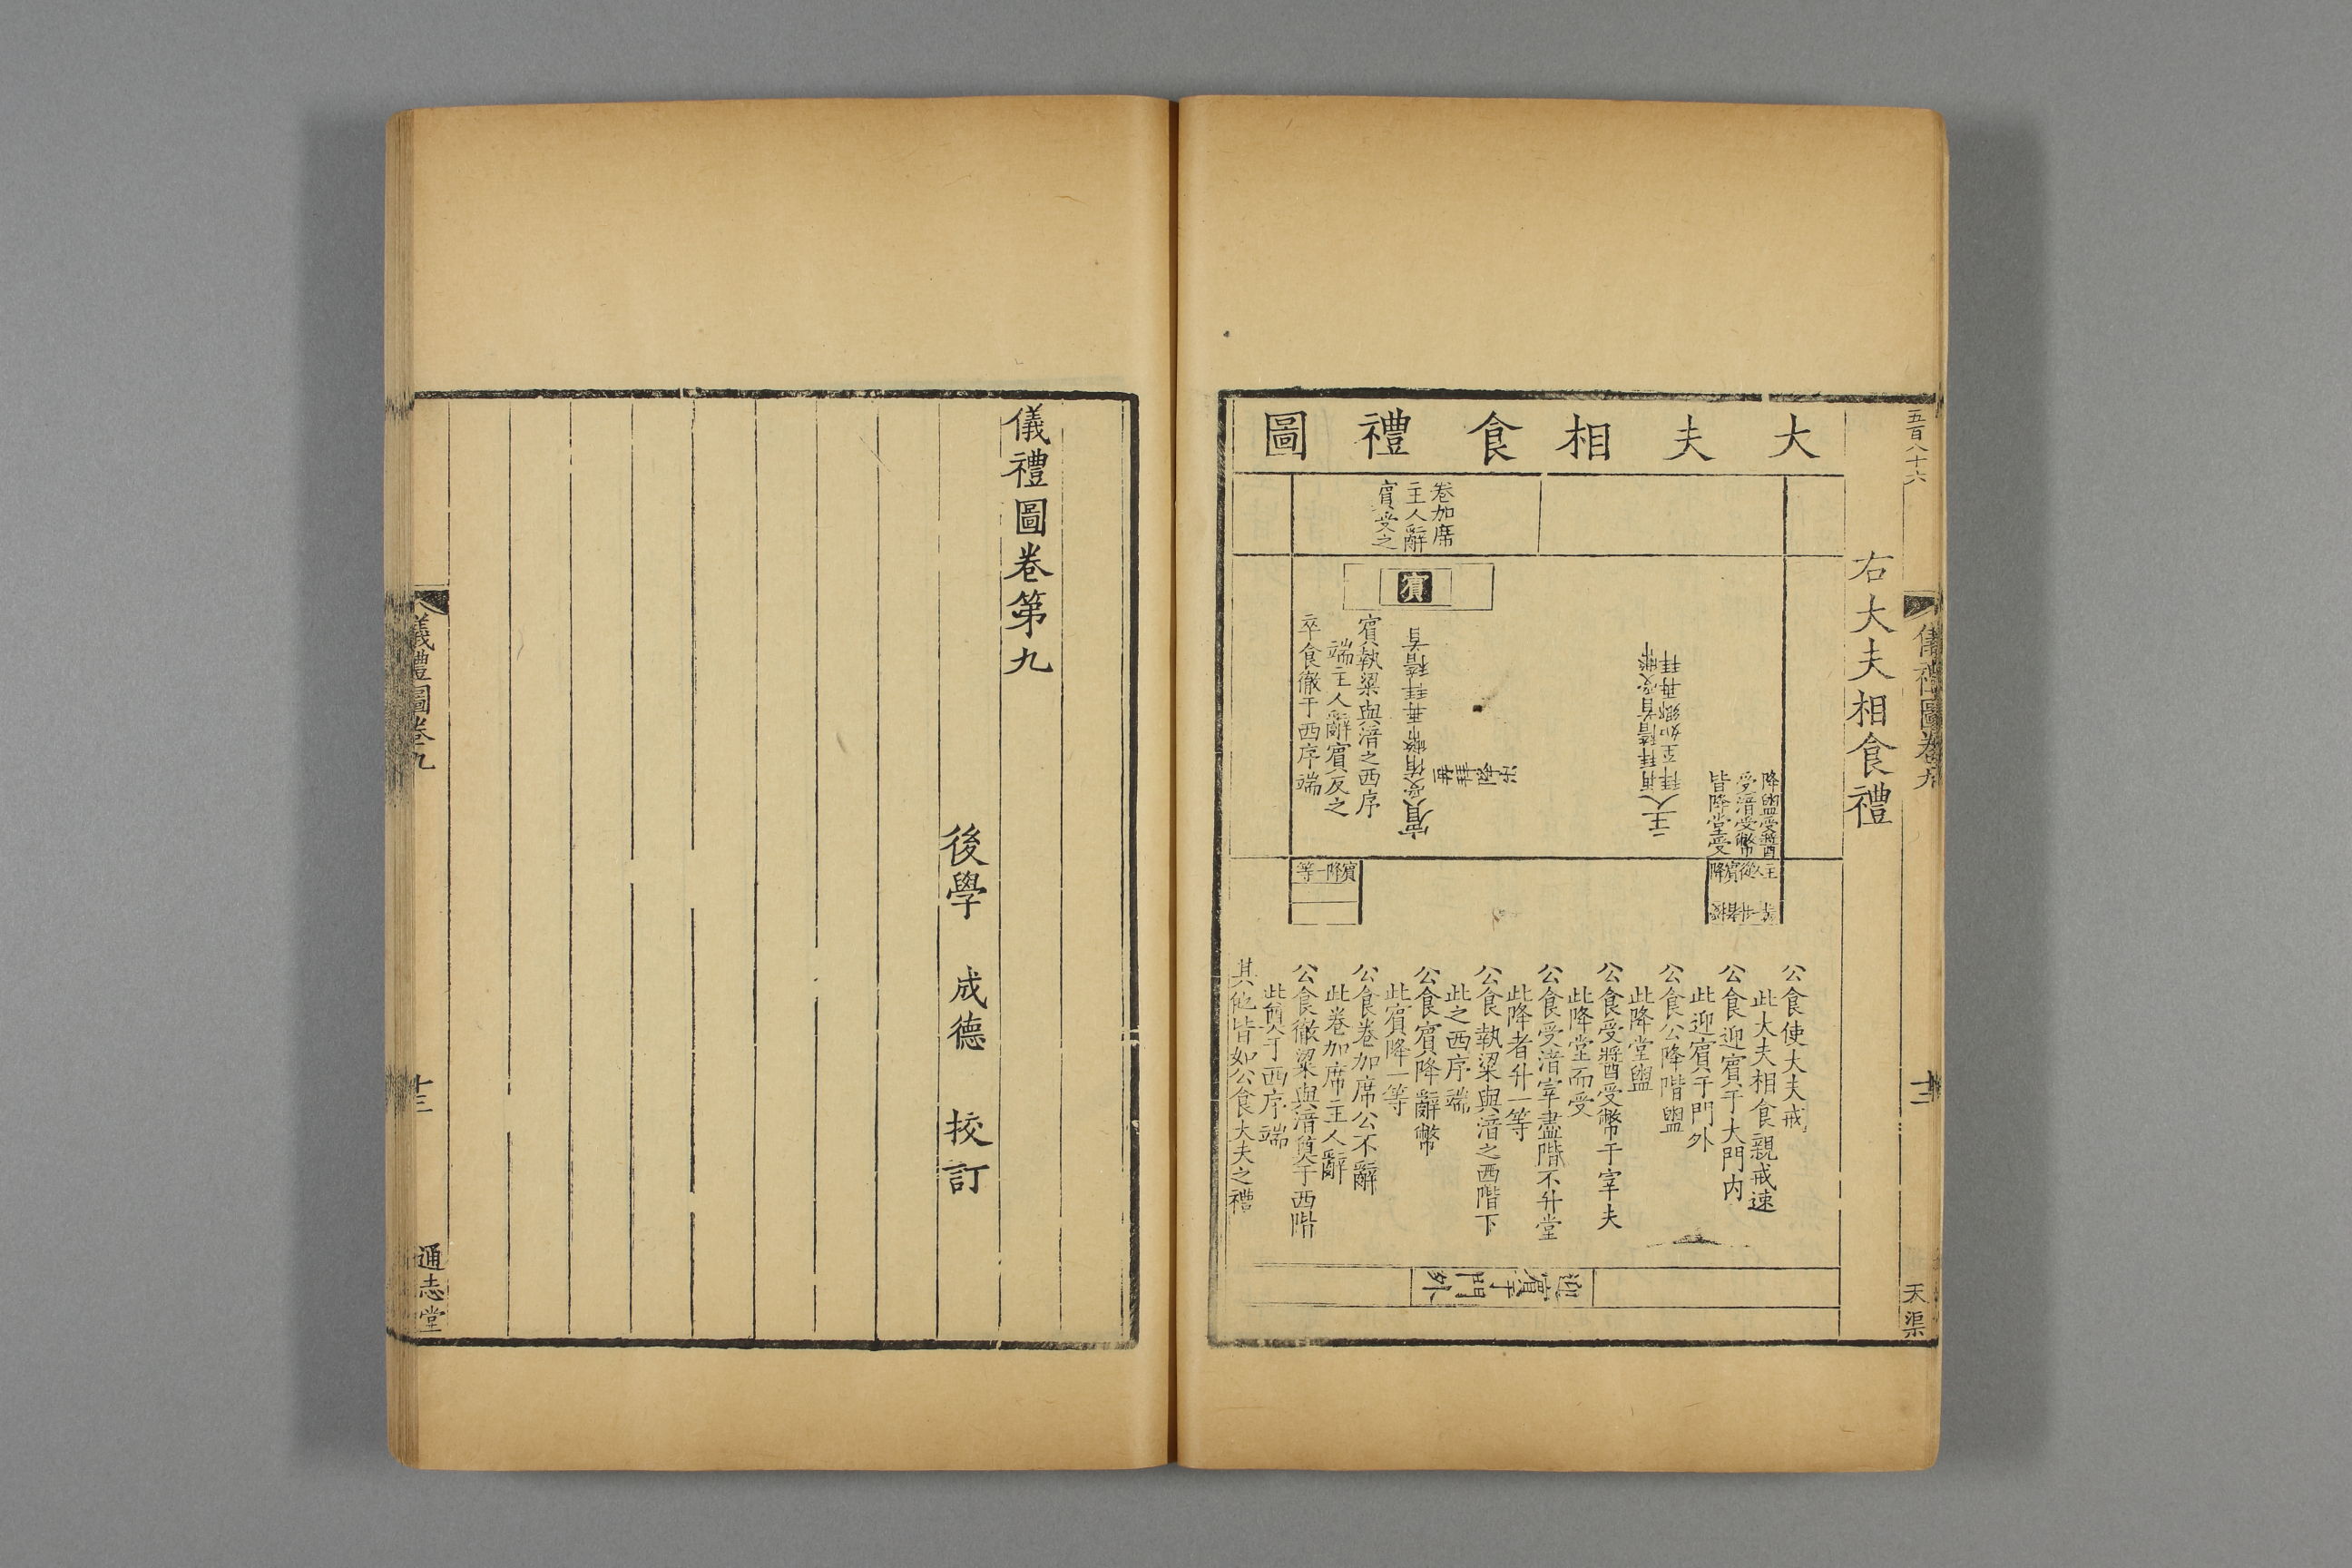 五百八十六
儀禮圖卷九
十三
天渠
右大夫相食禮
大夫相食禮圖
卷加席
主人辭
賓受之
賓
賓執粱與湆之西序
端主人辭賓反之
卒食徹于西序端
賓受侑幣再拜稽首
主人再拜稽首受幣
拜至如鄉再拜
降盥受醬
受湆受幣
皆降堂受
主人從賓降
賓降一等
公食使大夫戒
此大夫相食親戒速
公食迎賓于大門內
此迎賓于門外
公食公降階盥
此降堂盥
公食受醬受幣于宰夫
此降堂而受
公食受湆宰盡階不升堂
此降者升一等
公食執粱與湆之西階下
此之西序端
公食賓降辭幣
此賓降一等
公食卷加席公不辭
此卷加席主人辭
公食徹粱與湆奠于西階
此奠于西序端
其他皆如公食大夫之禮
迎賓于門外
儀禮圖卷第九
後學 成德 挍訂
儀禮圖卷九
十三
通志堂